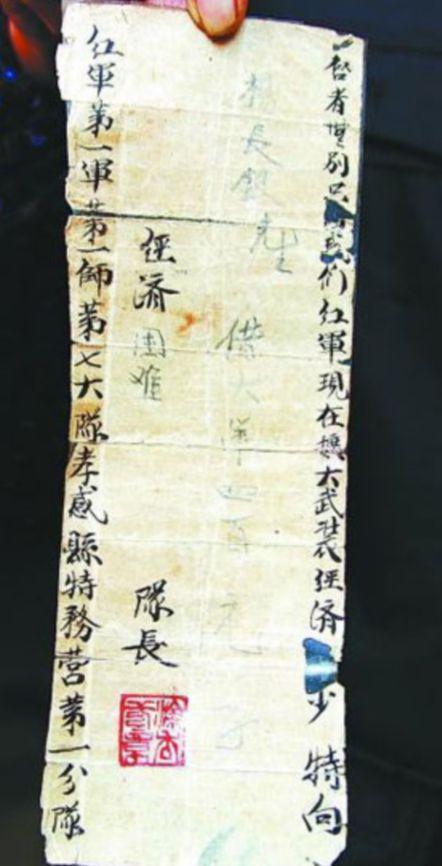 启者 别 们红军现在 大武装经济 少 特向
楊長銀先生 借大洋四百元
经济困难 隊長
红軍第一軍第一師第七大隊孝感縣特務营第一分隊